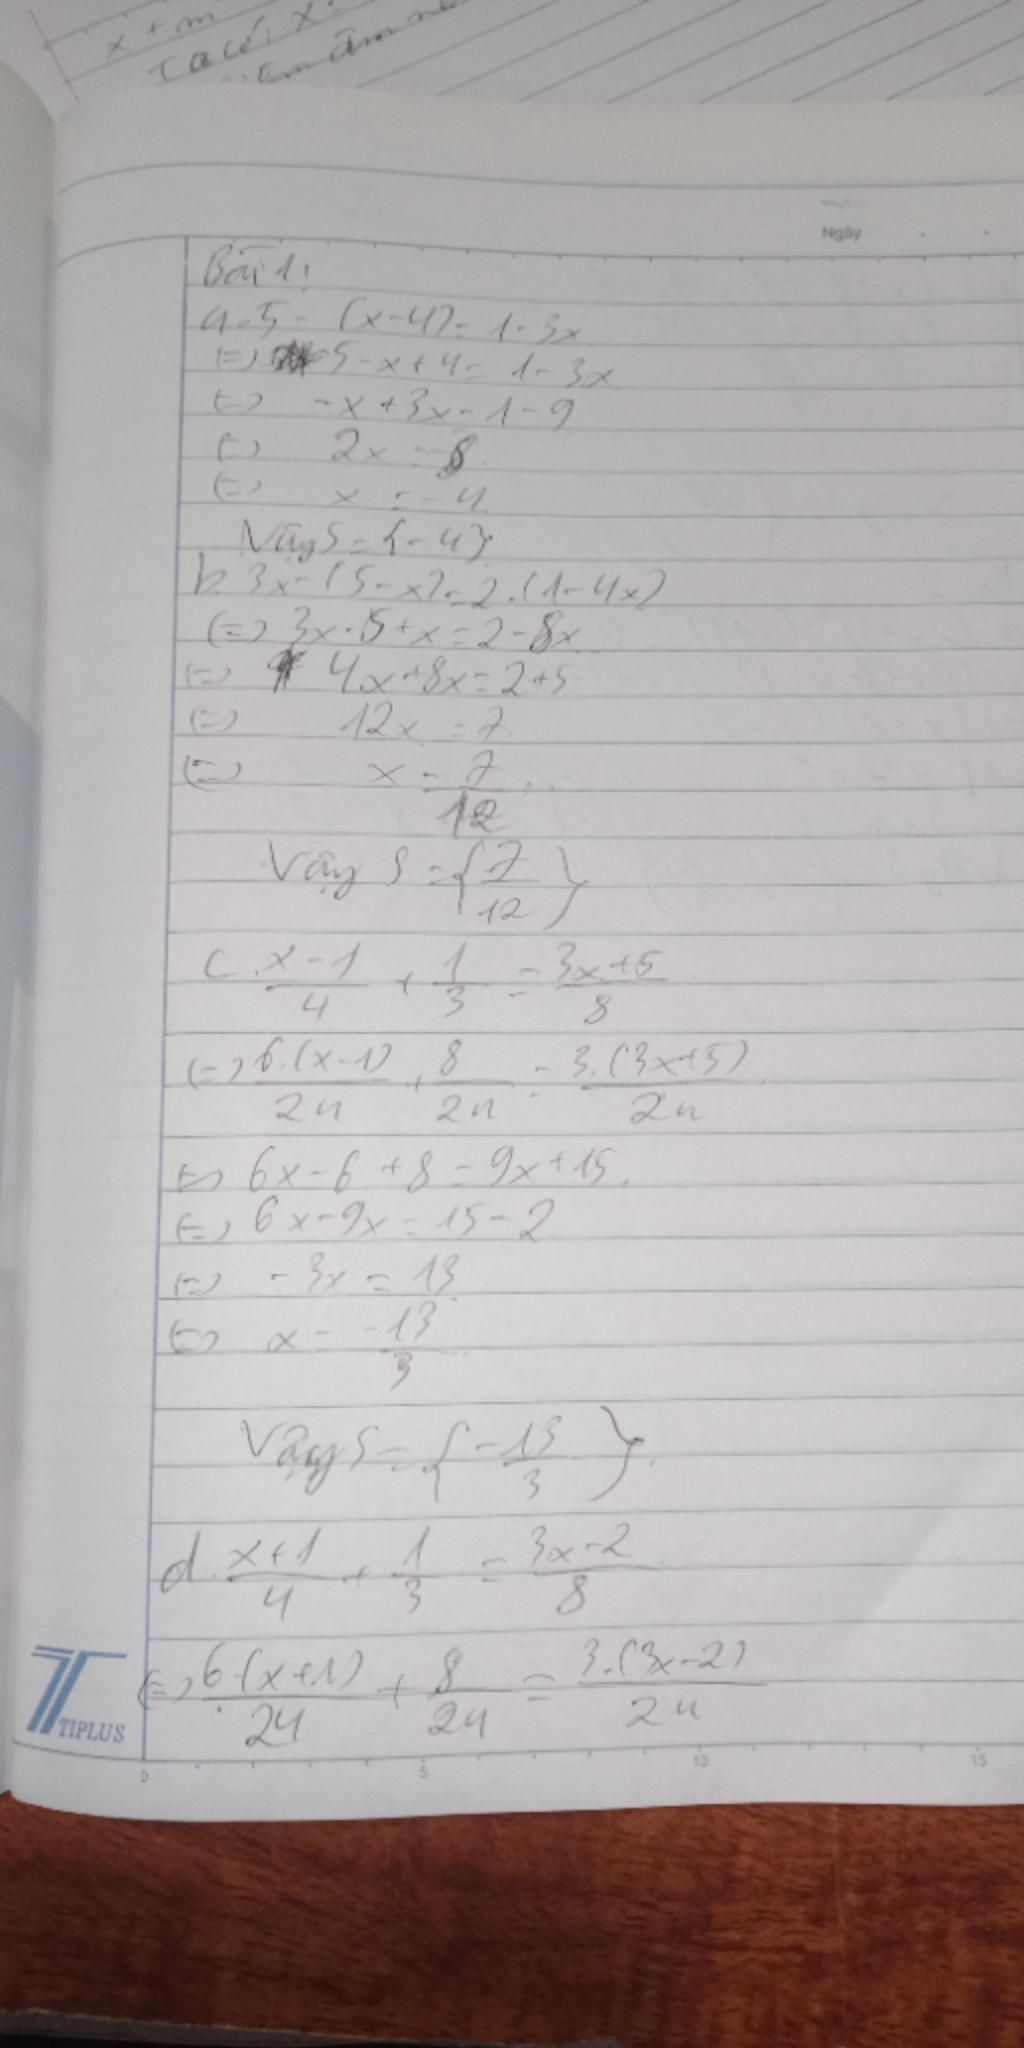 x + m
Ta có: x
âm
Ngày
Bài 1:
a. 5 - (x-4) = 1-3x
(=) 5-x+4 = 1-3x
(=) -x+3x = 1-9
(=) 2x = -8
(=) x = -4
Vậy S = {-4}
b. 3x - (5-x) = 2.(1-4x)
(=) 3x-5+x = 2-8x
(=) 4x+8x = 2+5
(=) 12x = 7
(=) x = 7/12
Vậy S = {7/12}
c. x-1/4 + 1/3 = 3x+5/8
(=) 6.(x-1)/24 + 8/24 = 3.(3x+5)/24
(=) 6x-6+8 = 9x+15
(=) 6x-9x = 15-2
(=) -3x = 13
(=) x = -13/3
Vậy S = {-13/3}.
d. x+1/4 + 1/3 = 3x-2/8
(=) 6.(x+1)/24 + 8/24 = 3.(3x-2)/24
TIPLUS
0 5 10 15